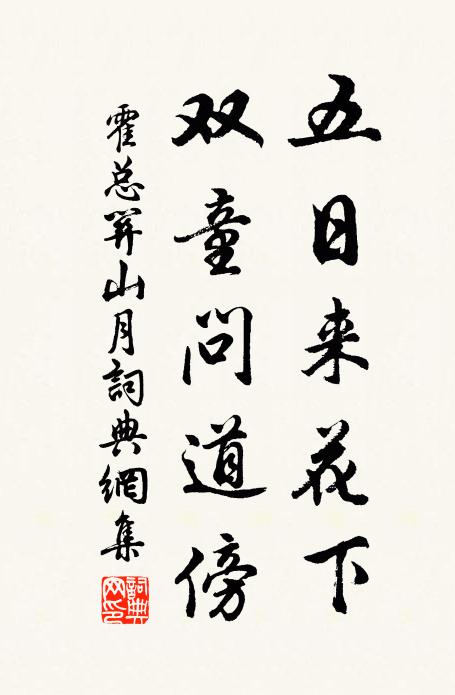 五日来花下
双童问道傍
霍总關山月詞典網集
詞典网印